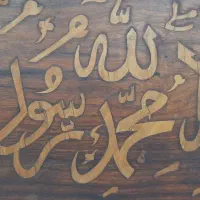 الله
محمد رسول